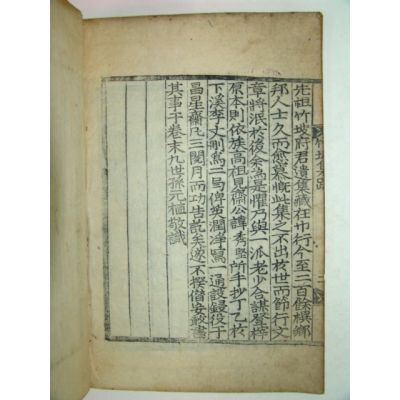 先祖竹坡府君遺集藏在巾行今至二百餘禩鄉
邦人士久而愈慨此集之不出於世而節行文
章將泯於後余爲是懼乃與一派老少合謀登梓
原本則依族高祖見齋公諱秀所手抄丁乙於
下溪李丈刪爲二局俾潤淨寫一通設鋟役于
昌星齋凡三閱月而功告訖矣遂不揆僭妄敢書
其事于卷末九世孫元植敬識